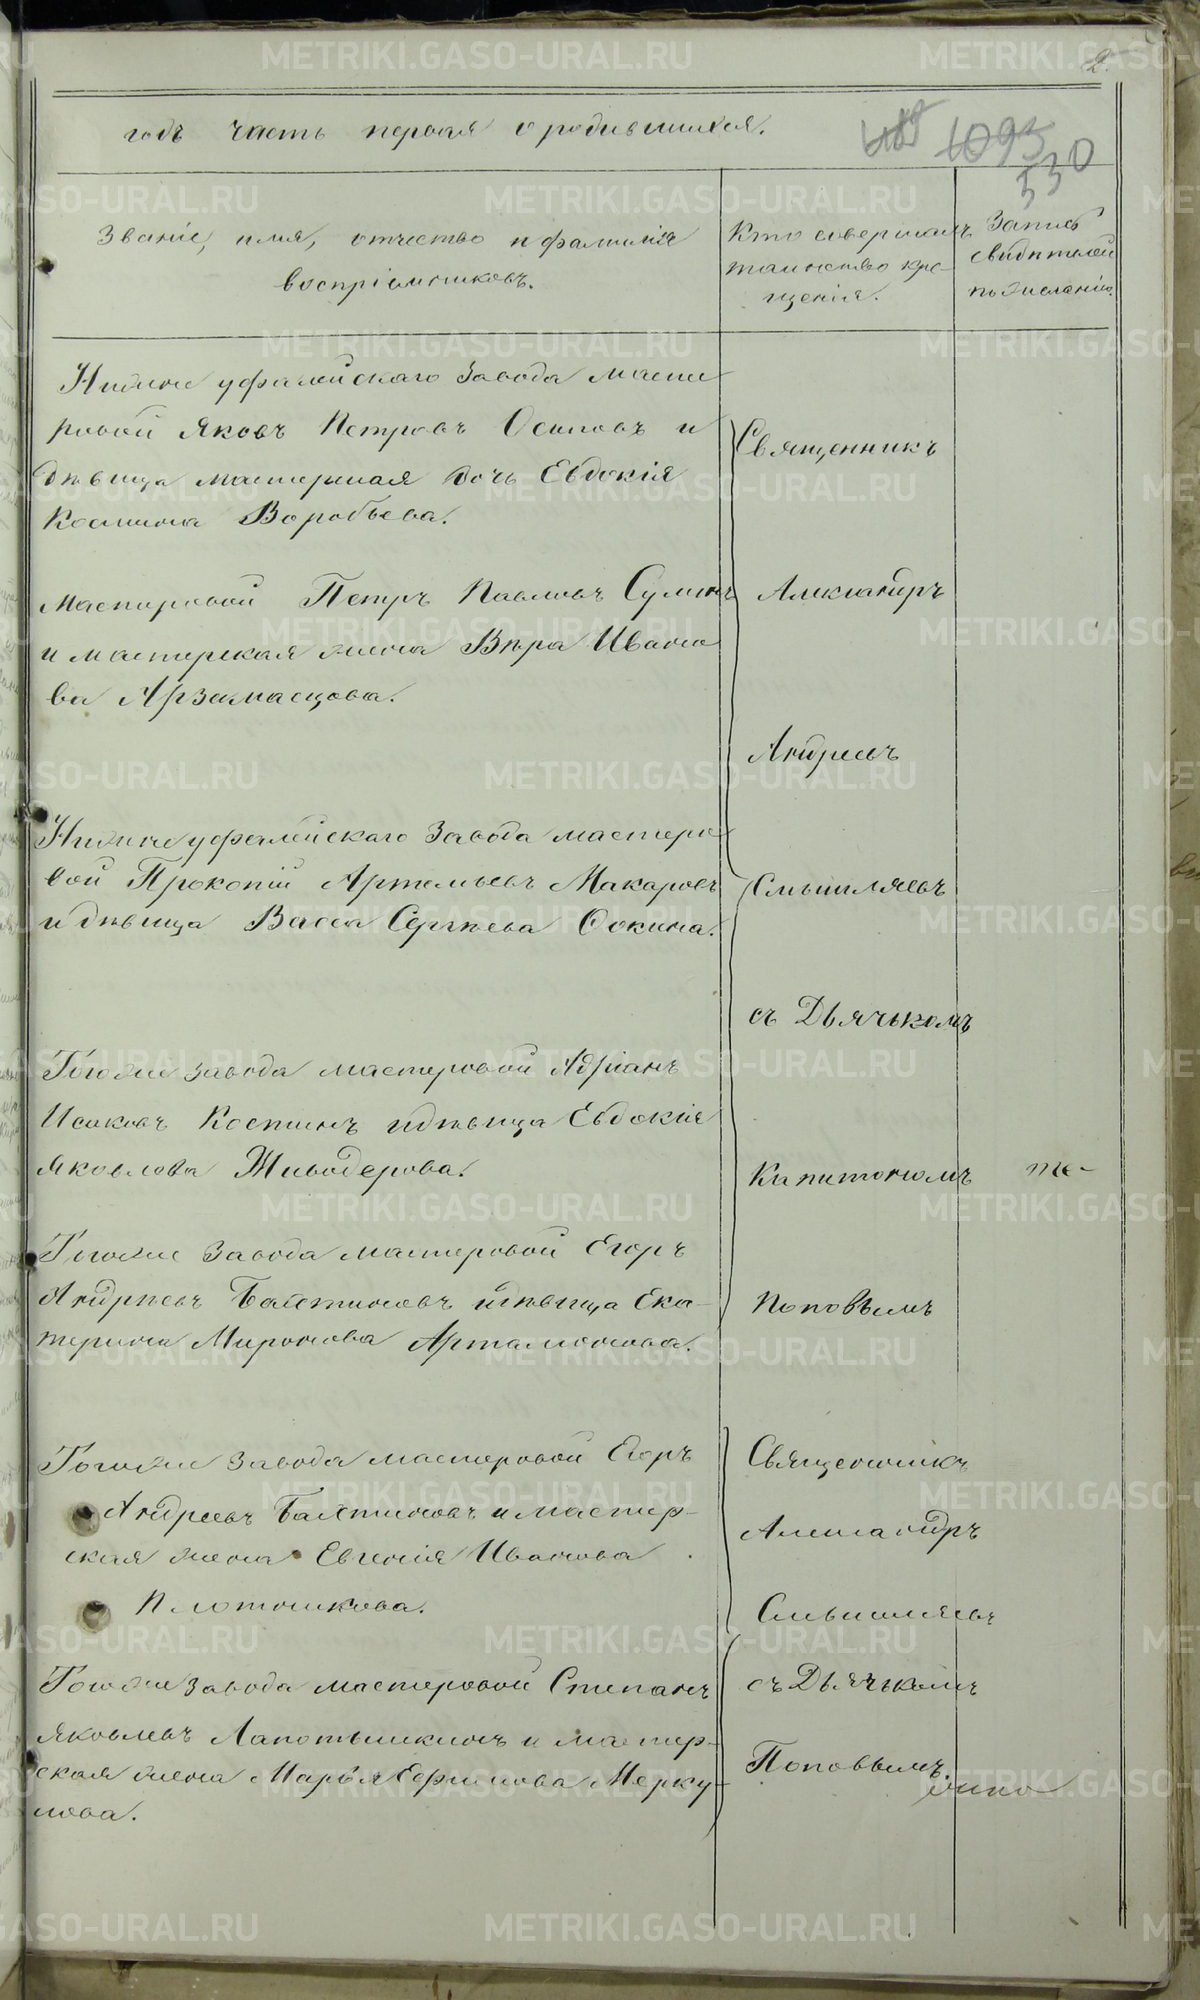 2.
годъ часть первая о родившихся.
1093
530
Званіе, имя, отчество и фамилія
воспріемниковъ.
Кто совершалъ
таинство кре-
щенія.
Запись
свидѣтелей
по желанію.
Нижне уфалейскаго завода масте
ровой Яковъ Петровъ Осиповъ и
дѣвица мастерская дочь Евдокія
Космина Воробьева.
Мастеровой Петръ Павловъ Суминъ
и мастерская жена Вѣра Ивано
ва Арзамасцова.
Нижнеуфалейскаго завода мастеро
вой Прокопій Артемьевъ Макаровъ
и дѣвица Васса Сергѣева Окина.
Тогоже завода мастеровой Адріанъ
Исаковъ Костинъ и дѣвица Евдокія
Яковлова Живодерова.
Тогоже завода мастеровой Егоръ
Андрѣевъ Балтиновъ и дѣвица Ека-
терина Миронова Артамонова.
Тогоже завода мастеровой Егоръ
Андреевъ Балтиновъ и мастер-
ская жена Евгенія Иванова
Плотникова.
Тогоже завода мастеровой Степанъ
Яковлевъ Лапотышкинъ и мастер-
ская жена Марья Ефимова Мерку-
лова.
Священникъ
Александръ
Андреевъ
Смышляевъ
съ Дьячькомъ
Капитономъ
Поповымъ
Священникъ
Александръ
Смышляевъ
съ Дьячькомъ
Поповымъ.
METRIKI.GASO-URAL.RU